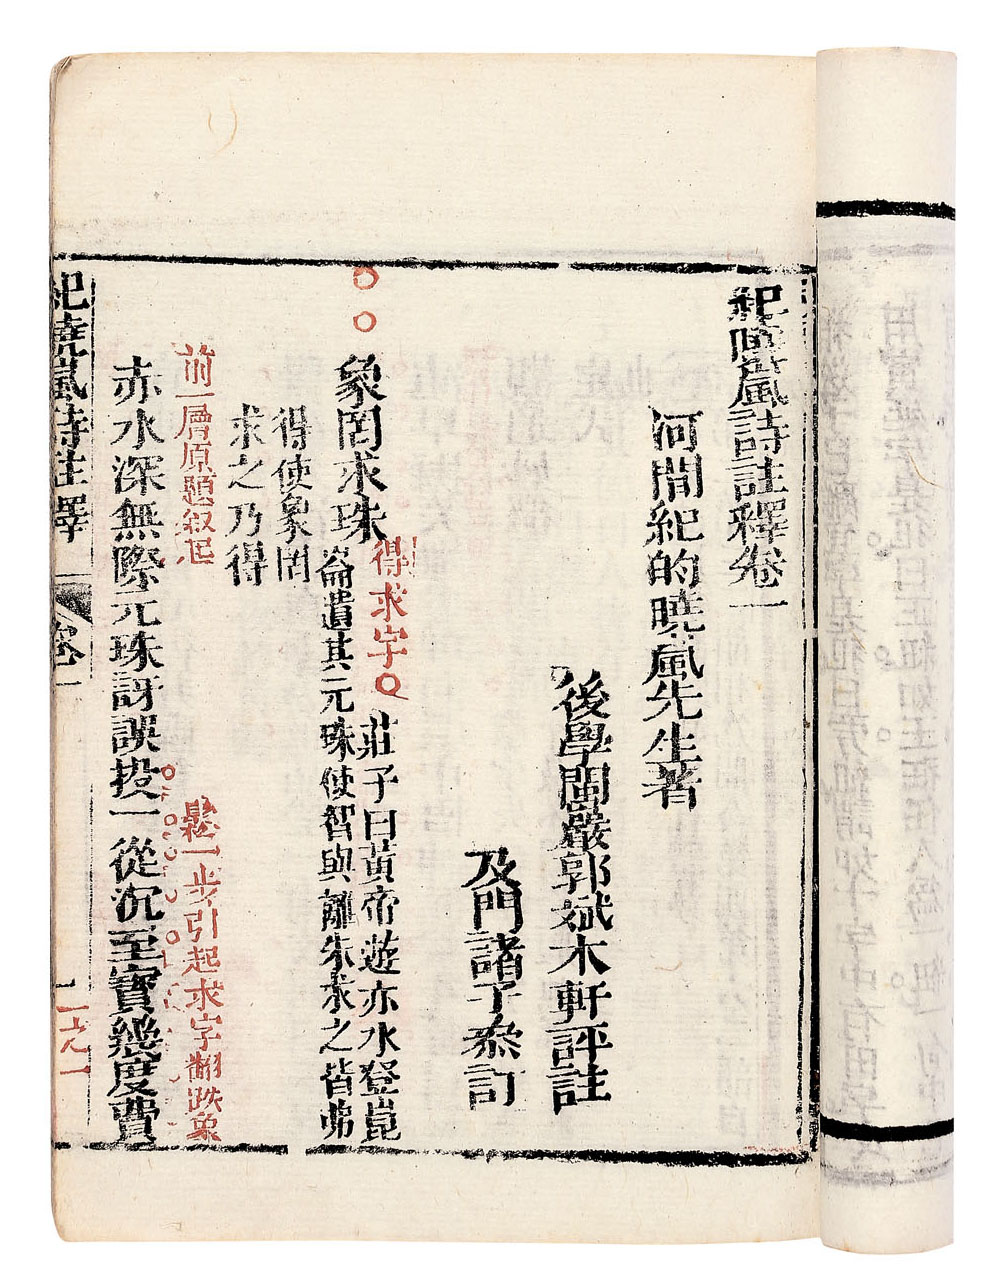 紀曉嵐詩註釋卷一
河間紀的曉嵐先生著
後學閩巖郭斌木軒評註
及門諸子叅訂
象罔求珠
得求字
莊子曰黃帝遊赤水登崑
崙遺其元珠使智與離朱求之皆弗
得使象罔
求之乃得
前一層原題叙起
鬆一步引起求字翻跌象
赤水深無際元珠訝誤投一從沉至寶幾度費
紀曉嵐詩註釋
卷一
一